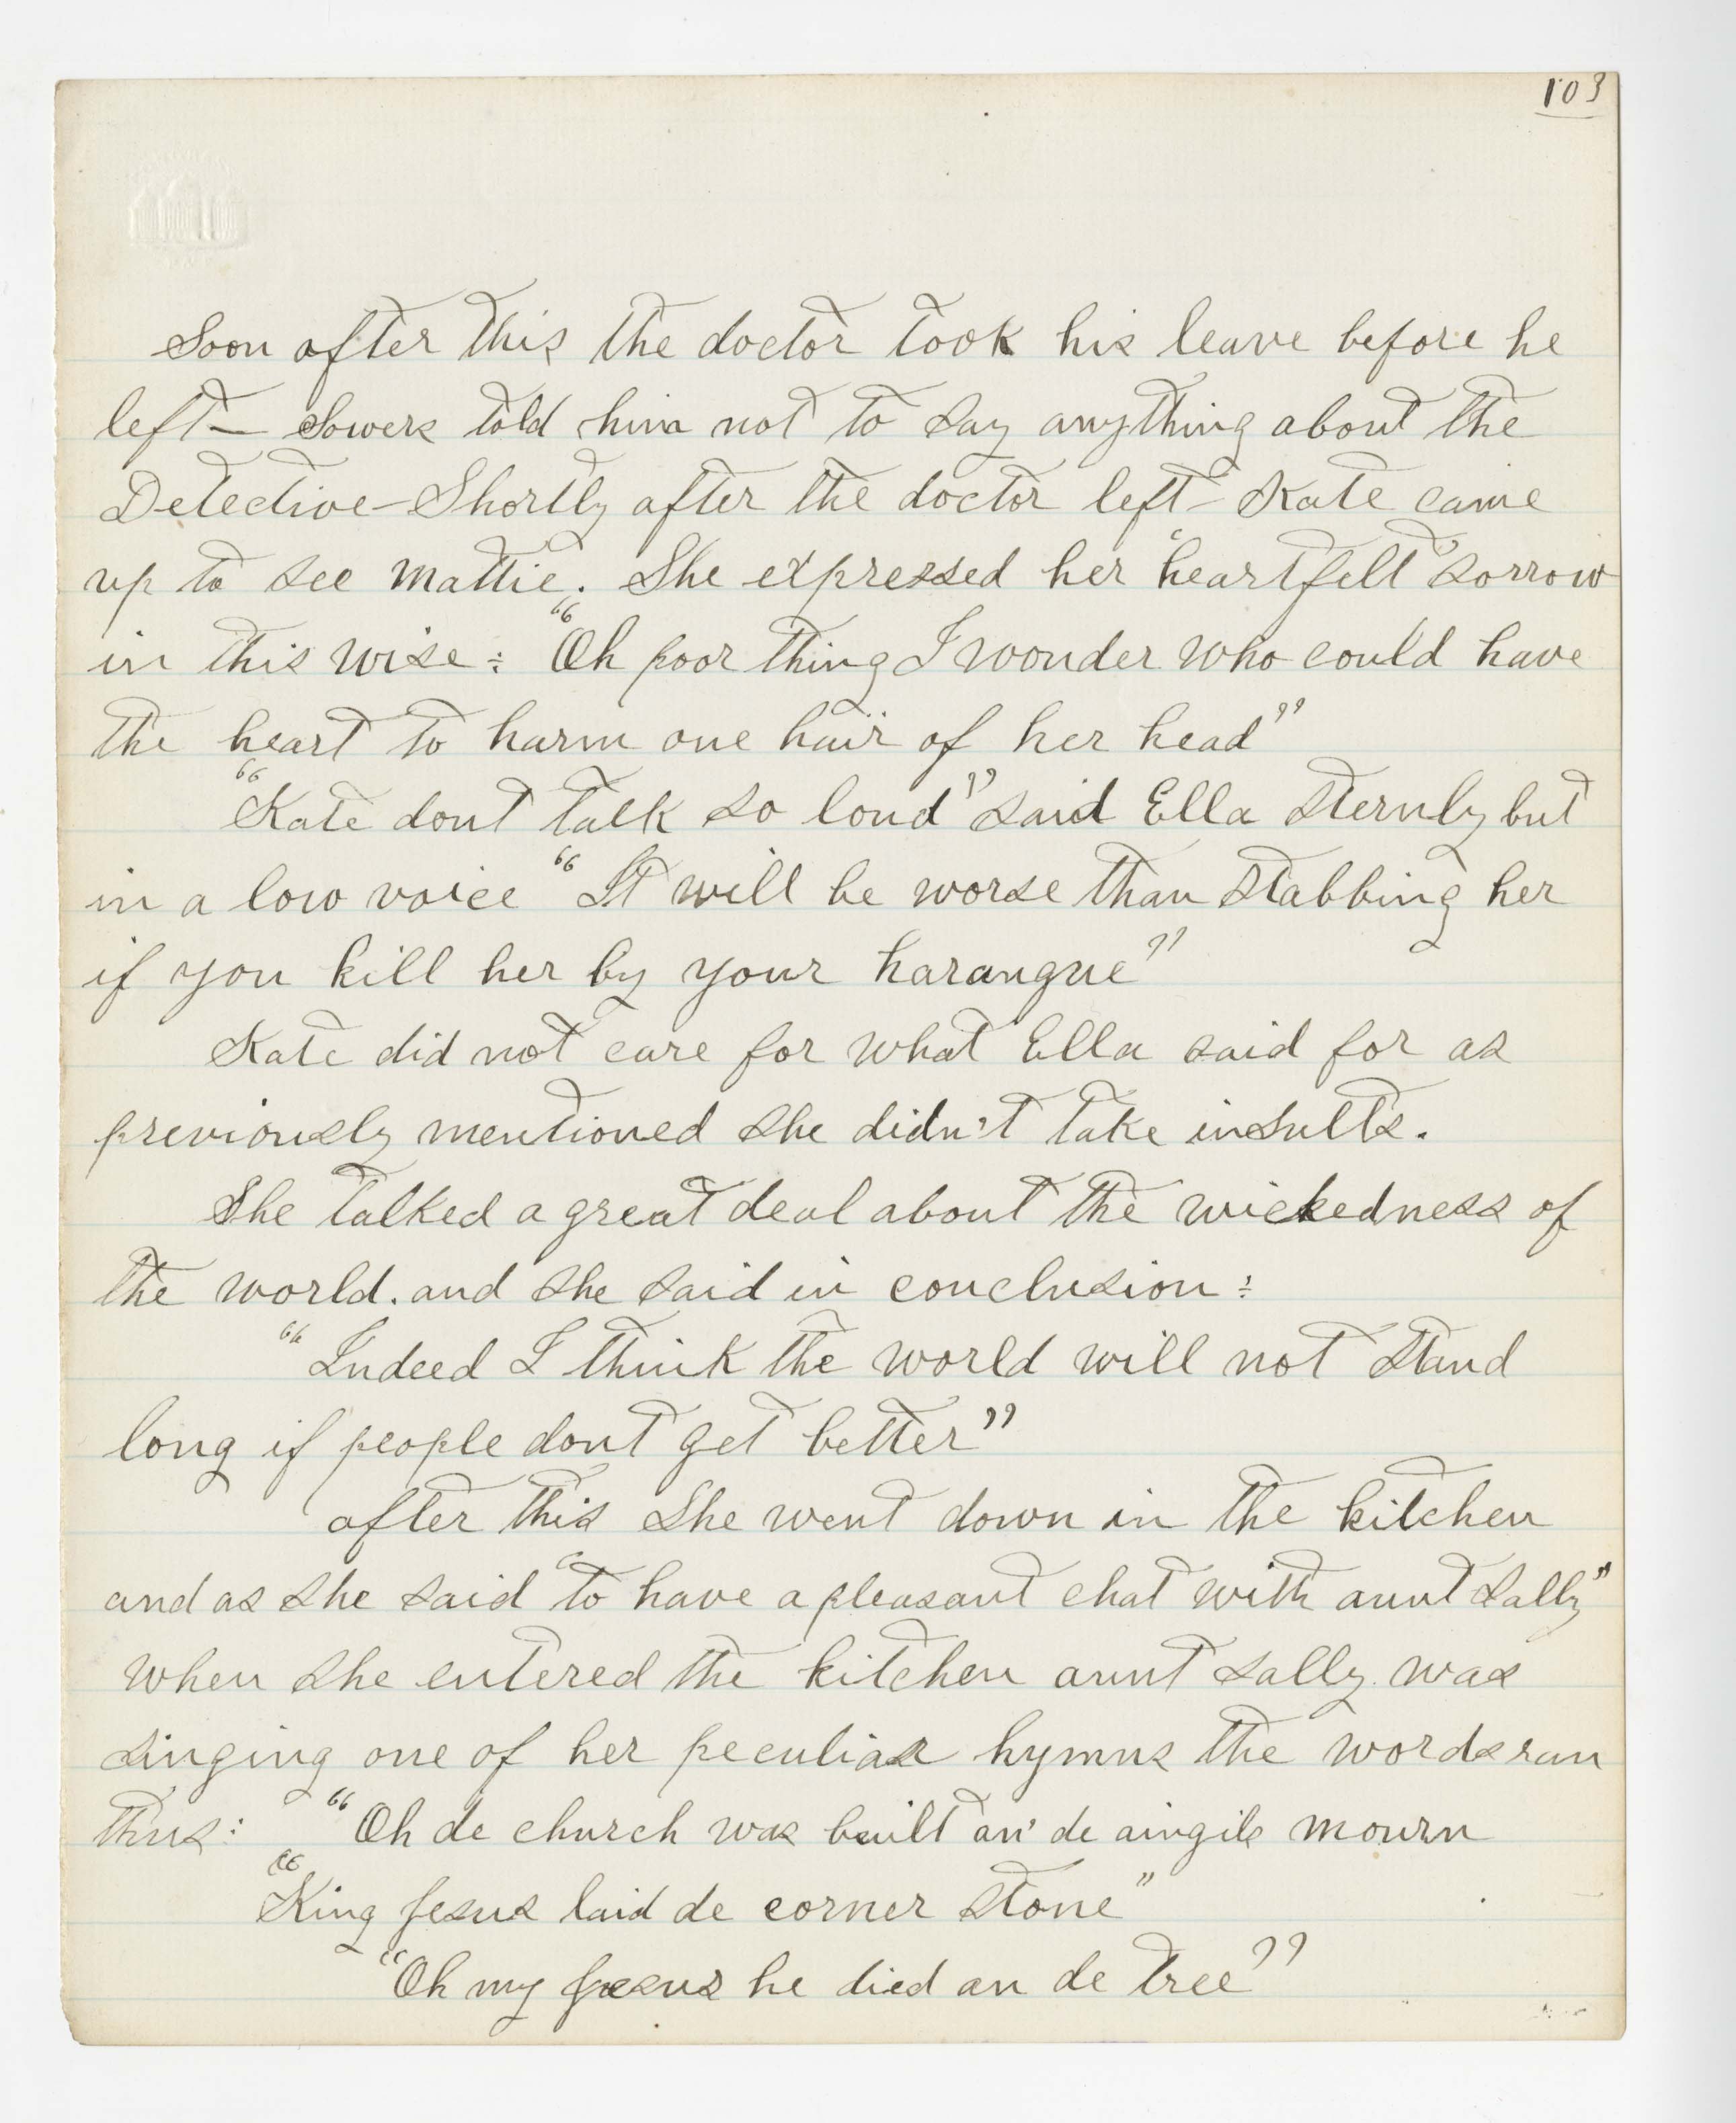 103
Soon after this the doctor took his leave before he
left — Sowers told him not to say anything about the
Detective — Shortly after the doctor left - Kate came
up to see Mattie. She expressed her "heartfelt" sorrow
in this wise: "Oh poor thing I wonder who could have
the heart to harm one hair of her head"
"Kate dont talk so loud" said Ella sternly but
in a low voice "It will be worse than stabbing her
if you kill her by your harangue"
Kate did not care for what Ella said for as
previously mentioned she didn't take insults.
She talked a great deal about the wickedness of
the world. and she said in conclusion:
"Indeed I think the world will not stand
long if people dont get better"
after this she went down in the kitchen
and as she said "to have a pleasant chat with aunt Sally"
when she entered the kitchen aunt Sally was
singing one of her peculiar hymns the words ran
thus: "Oh de church was built an' de aingils mourn
"King Jesus laid de corner stone"
"Oh my Jesus he died an de tree"